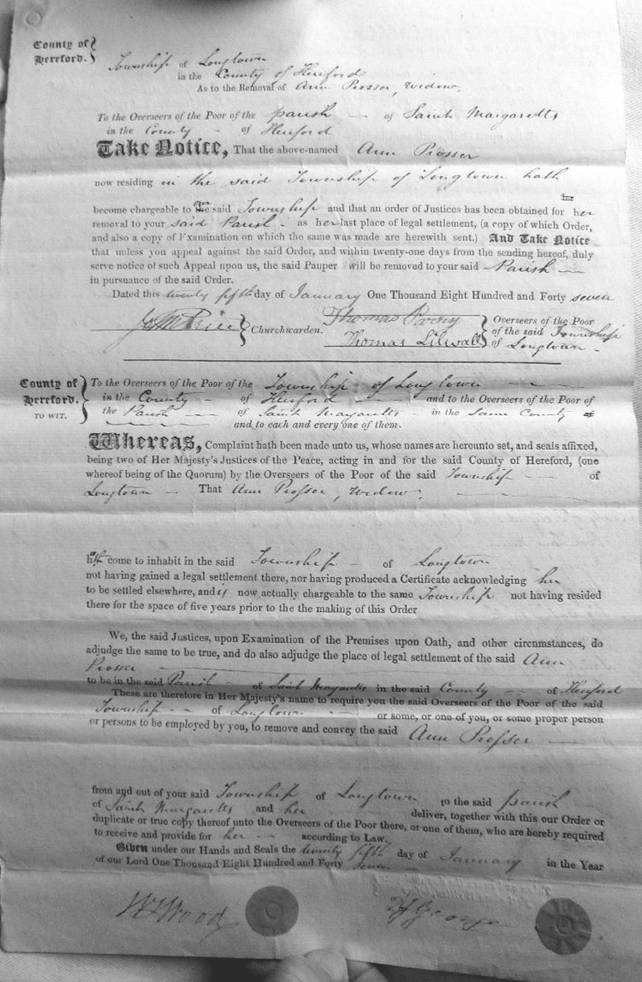 County of
Hereford.
Township of Longtown
in the County of Hereford
As to the Removal of Ann Prosser, Widow,
To the Overseers of the Poor of the parish of Saint Margaretts
in the County of Hereford
Take Notice, That the above-named Ann Prosser
now residing in the said Township of Longtown hath
become chargeable to the said Township and that an order of Justices has been obtained for her
removal to your said Parish as her last place of legal settlement, (a copy of which Order,
and also a copy of Examination on which the same was made are herewith sent.) And Take Notice
that unless you appeal against the said Order, and within twenty-one days from the sending hereof, duly
serve notice of such Appeal upon us, the said Pauper will be removed to your said Parish
in pursuance of the said Order.
Dated this twenty fifth day of January One Thousand Eight Hundred and Forty seven
Price Churchwarden. Thomas Overseers of the Poor
Thomas Lilwall of the said Township
of Longtown
County of
Hereford.
TO WIT.
To the Overseers of the Poor of the Township of Longtown
in the County of Hereford and to the Overseers of the Poor of
the Parish of Saint Margaretts in the same County
and to each and every one of them.
Whereas, Complaint hath been made unto us, whose names are hereunto set, and seals affixed,
being two of Her Majesty's Justices of the Peace, acting in and for the said County of Hereford, (one
whereof being of the Quorum) by the Overseers of the Poor of the said Township of
Longtown That Ann Prosser, Widow,
hath come to inhabit in the said Township of Longtown
not having gained a legal settlement there, nor having produced a Certificate acknowledging her
to be settled elsewhere, and is now actually chargeable to the same Township not having resided
there for the space of five years prior to the the making of this Order
We, the said Justices, upon Examination of the Premises upon Oath, and other circumstances, do
adjudge the same to be true, and do also adjudge the place of legal settlement of the said Ann
Prosser
to be in the said Parish of Saint Margaretts in the said County of Hereford
These are therefore in Her Majesty's name to require you the said Overseers of the Poor of the said
Township of Longtown or some, or one of you, or some proper person
or persons to be employed by you, to remove and convey the said Ann Prosser
from and out of your said Township of Longtown to the said parish
of Saint Margaretts and her deliver, together with this our Order or
duplicate or true copy thereof unto the Overseers of the Poor there, or one of them, who are hereby required
to receive and provide for her according to Law.
Given under our Hands and Seals the twenty fifth day of January in the Year
of our Lord One Thousand Eight Hundred and Forty seven
Wood
George